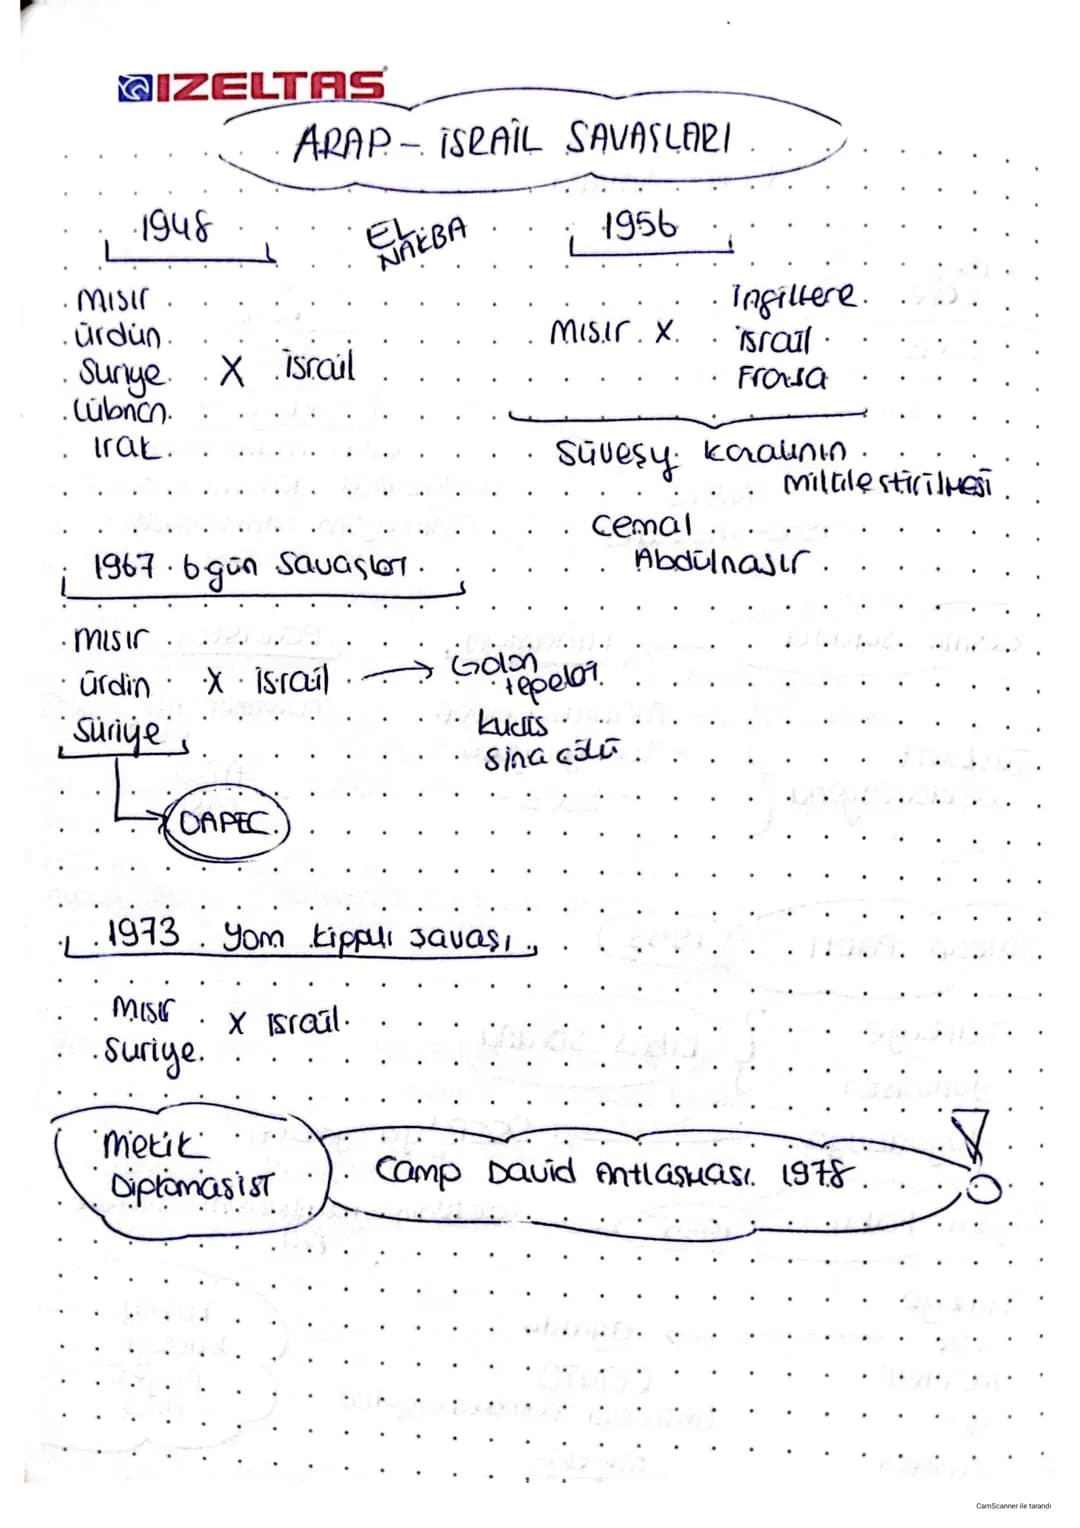 IZELTAŞ
ARAP - İSRAİL SAVAŞLARI
1948
EL NAKBA
1956
Mısır
ürdün
Suriye
Lübnan
Irak
X israil
Mısır X
İngiltere
israil
Fransa
Süveyş kanalının
millileştirilmesi
Cemal
Abdülnasır
1967 6 gün Savaşları
Mısır
ürdin
Süriye
X israil → Golan
tepeleri
kudüs
sina çölü
OAPEC
1973 Yom kippur savaşı
Mısır
Suriye
X israil
Mekik
Diplomasisi
Camp David Antlaşması 1978
!
CamScanner ile tarandı